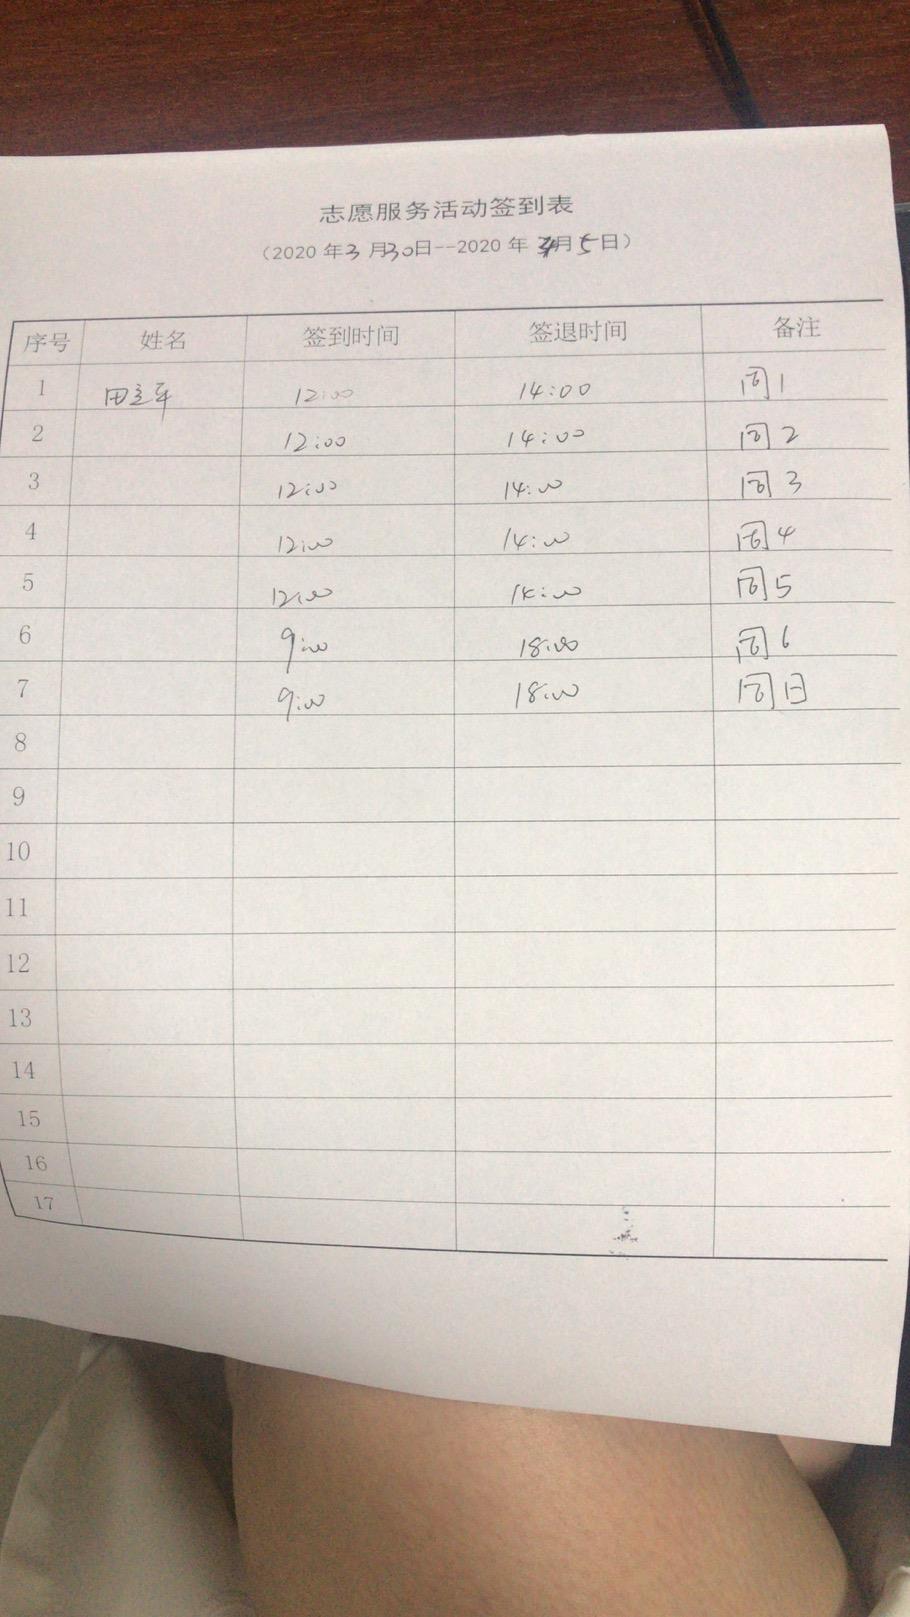 志愿服务活动签到表
（2020 年3 月30日--2020 年 4月5日）
序号 姓名 签到时间 签退时间 备注
1 12:00 14:00 周1
2 12:00 14:00 周2
3 12:00 14:00 周3
4 12:00 14:00 周4
5 12:00 14:00 周5
6 9:00 18:00 周6
7 9:00 18:00 周日
8
9
10
11
12
13
14
15
16
17